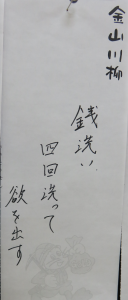 金山川柳
銭洗い
四回洗って
欲を出す